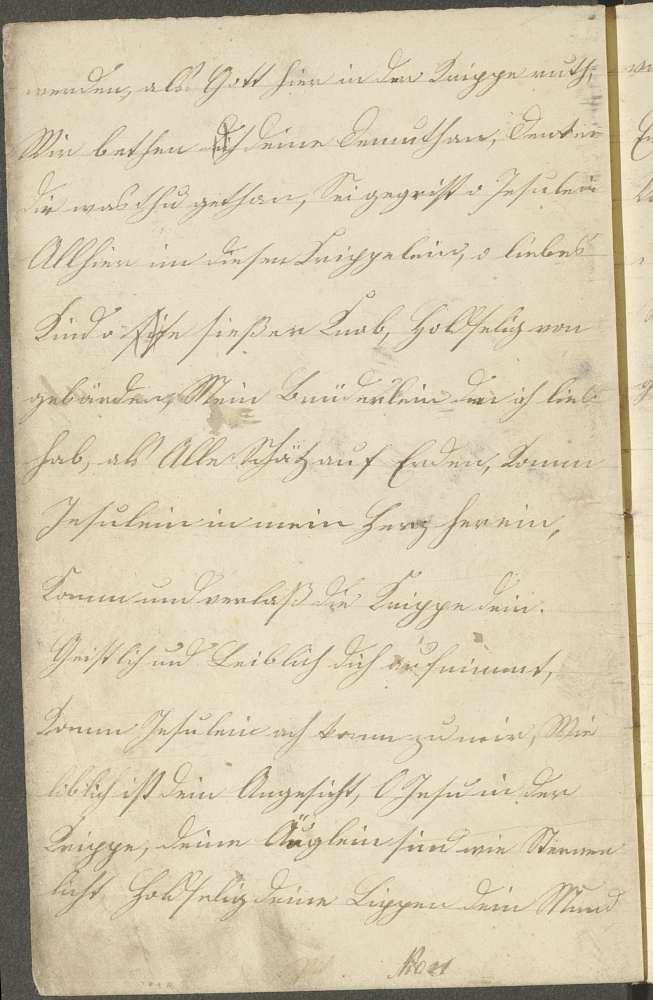 werden, als Gott hier in der Krippe ruth,
Wir bethen deine Demuth an,
die was du gethan, Sei gegrißt o Jesulein
Allhier im diesen Krippelein, o liebes
Kind o sießer Knab, Holdselig von
gebärden, Mein Brüderlein den ich lieb
hab, als Alle Schätz auf Erden, Komm
Jesulein in mein Herz herein,
Komm und verlaß die Krippe dein.
Geistlich und Leiblich dich aufnimmt,
Komm Jesulein ach komm zu mir, Wie
liblich ist dein Angesicht, O Jesu in der
Krippe, deine Äuglein sind wie Sternen
licht Holdselig deine Lippen dein Mund